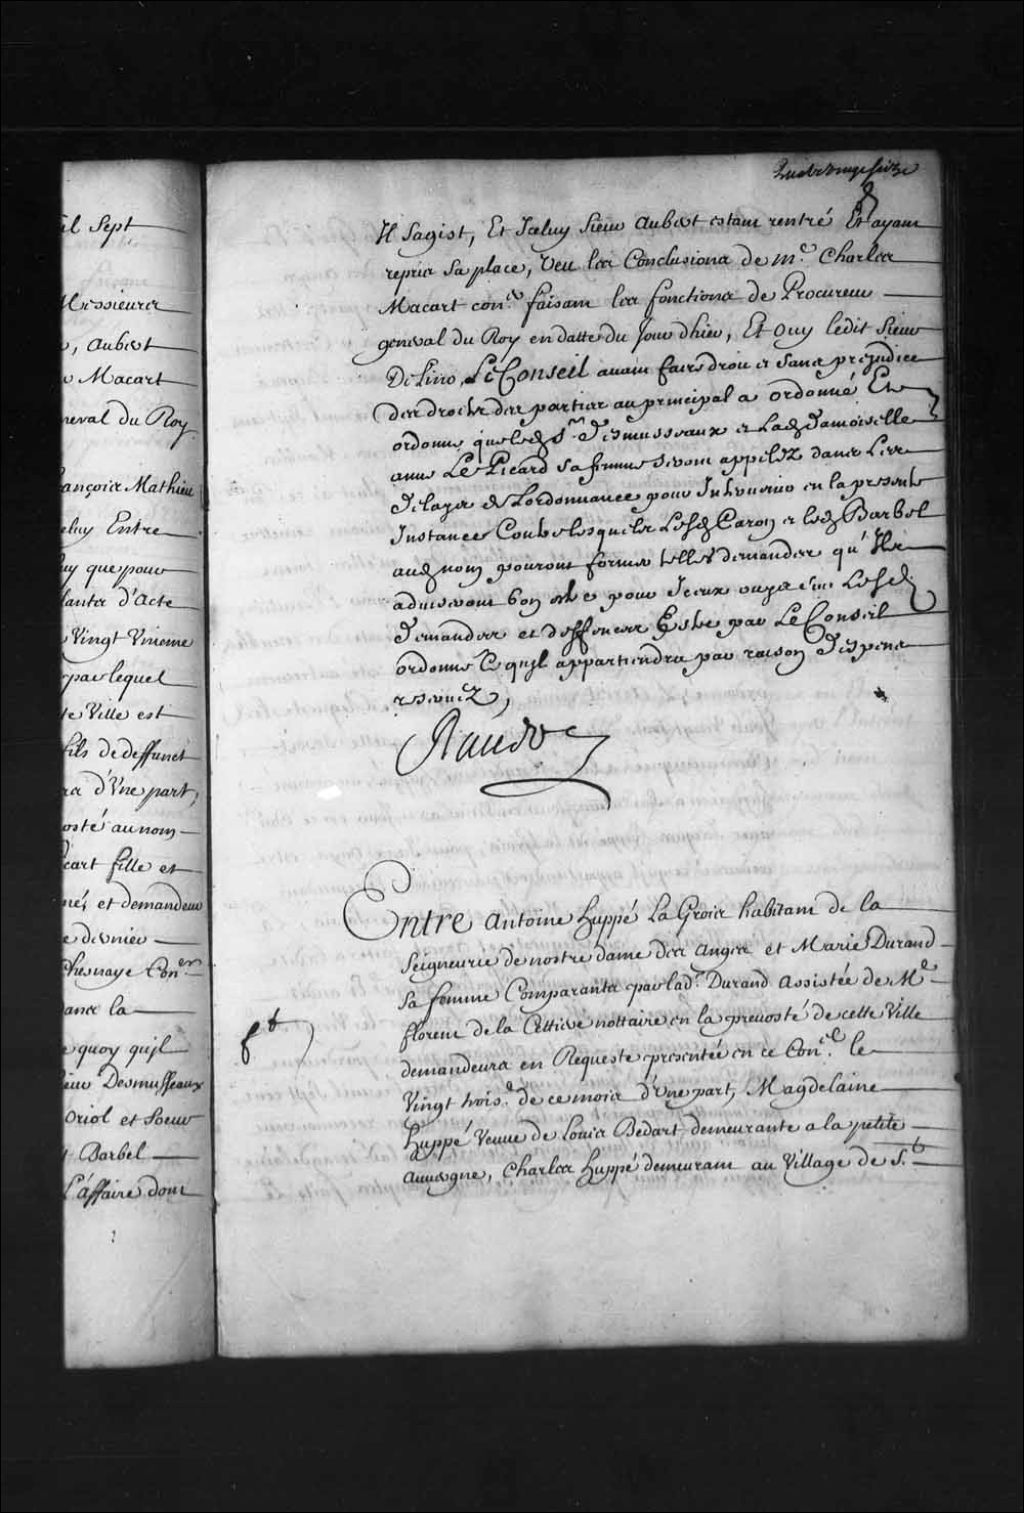 Quatre vingt seize
il sept
Messieurs
, Aubert
Macart
neral du Roy
ançois Mathieu
eluy Entre
uy que pour
lants d'Acte
Vingt Unieme
par lequel
te Ville est
fils de deffunct
rs d'Une part,
osté au nom
cart fille et
né, et demandeur
e dernier
Chesnaye Con.er
dans la
e quoy qu'il
ieur Desmusseaux
oriol et soeur
Barbel
L'affaire dont
Il sagist, Et Iceluy Sieur Aubert estant rentré Et ayant
repris sa place, Veu les Conclusions de m.e Charles
Macart con.er faisant les fonctions de Procureur
general du Roy en datte du Jour d'hier, Et Ouy ledit Sieur
De Lino, Le Conseil avant faire droit et sans prejudice
des droits des parties au principal a ordonné Et
ordonne que led. S.r Desmusseaux et Lad. Damoiselle
anne Le Picard sa femme seront appellez dans Les
delays de L'ordonnance pour Intervenir en la presente
Instance Contre lesquels Lesd. Caron et led. Barbel
aud. nom pouront former telles demandes qu'Ils
aviseront bon estre pour Iceux ouys sur Lesd.
demandes et deffences Estre par Le Conseil
ordonné Ce qu'Il appartiendra par raison Despens
reservez,
Raudot
Entre Antoine Huppé La Grois habitant de la
Seigneurie de nostre dame des Anges et Marie Durand
sa femme Comparants par lad.e Durand assistée de M.e
florent de la Cettiere nottaire en la prevosté de cette Ville
demandeurs en Requeste presentée en ce Con.el le
Vingt trois.e de ce mois d'Une part, Magdelaine
Huppé Veuve de Louis Bedart demeurante a la petite
Auvergne, Charles Huppé demeurant au Village de S.t